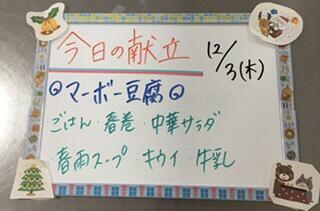 今日の献立 12/3(木)
◎マーボー豆腐◎
ごはん・春巻・中華サラダ
・春雨スープ・キウイ・牛乳